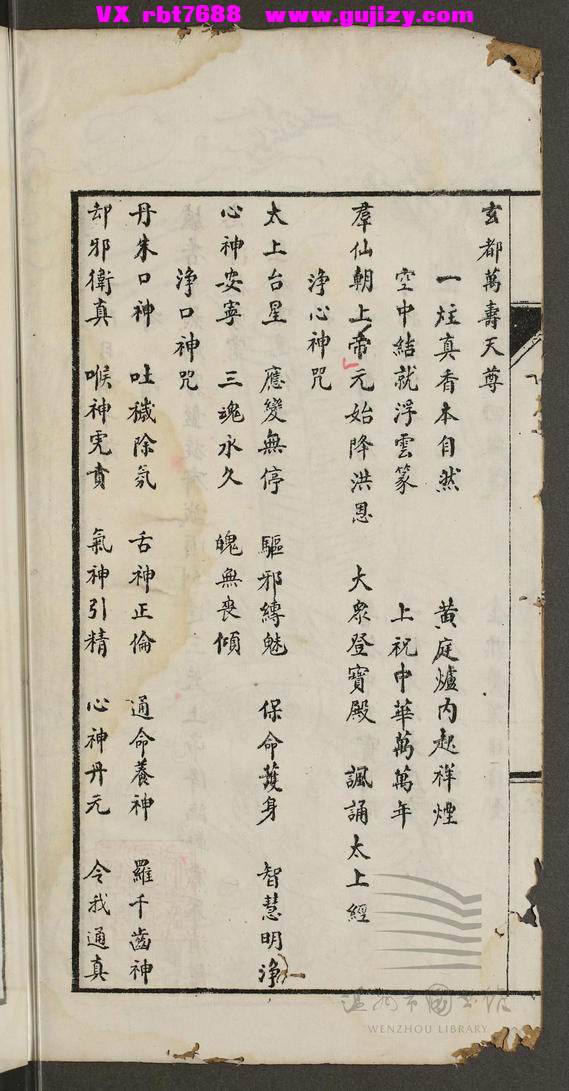 VX rbt7688 www.gujizy.com
玄都萬壽天尊
一炷真香本自然 黄庭爐内起祥煙
空中結就浮雲篆 上祝中華萬萬年
羣仙朝上帝 元始降洪恩 大衆登寶殿 諷誦太上經
浄心神咒
太上台星 應變無停 驅邪縛魅 保命護身 智慧明浄
心神安寧 三魂永久 魄無喪傾
浄口神咒
丹朱口神 吐穢除氛 舌神正倫 通命養神 羅千齒神
却邪衛真 喉神虎賁 氣神引精 心神丹元 令我通真
温州市图书馆
WENZHOU LIBRARY